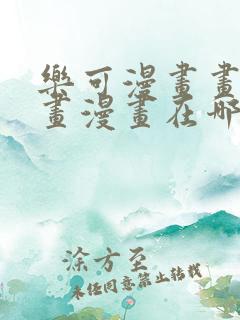 樂可漫畫畫
畫漫畫在哪
涂方至
未經同意禁止轉載